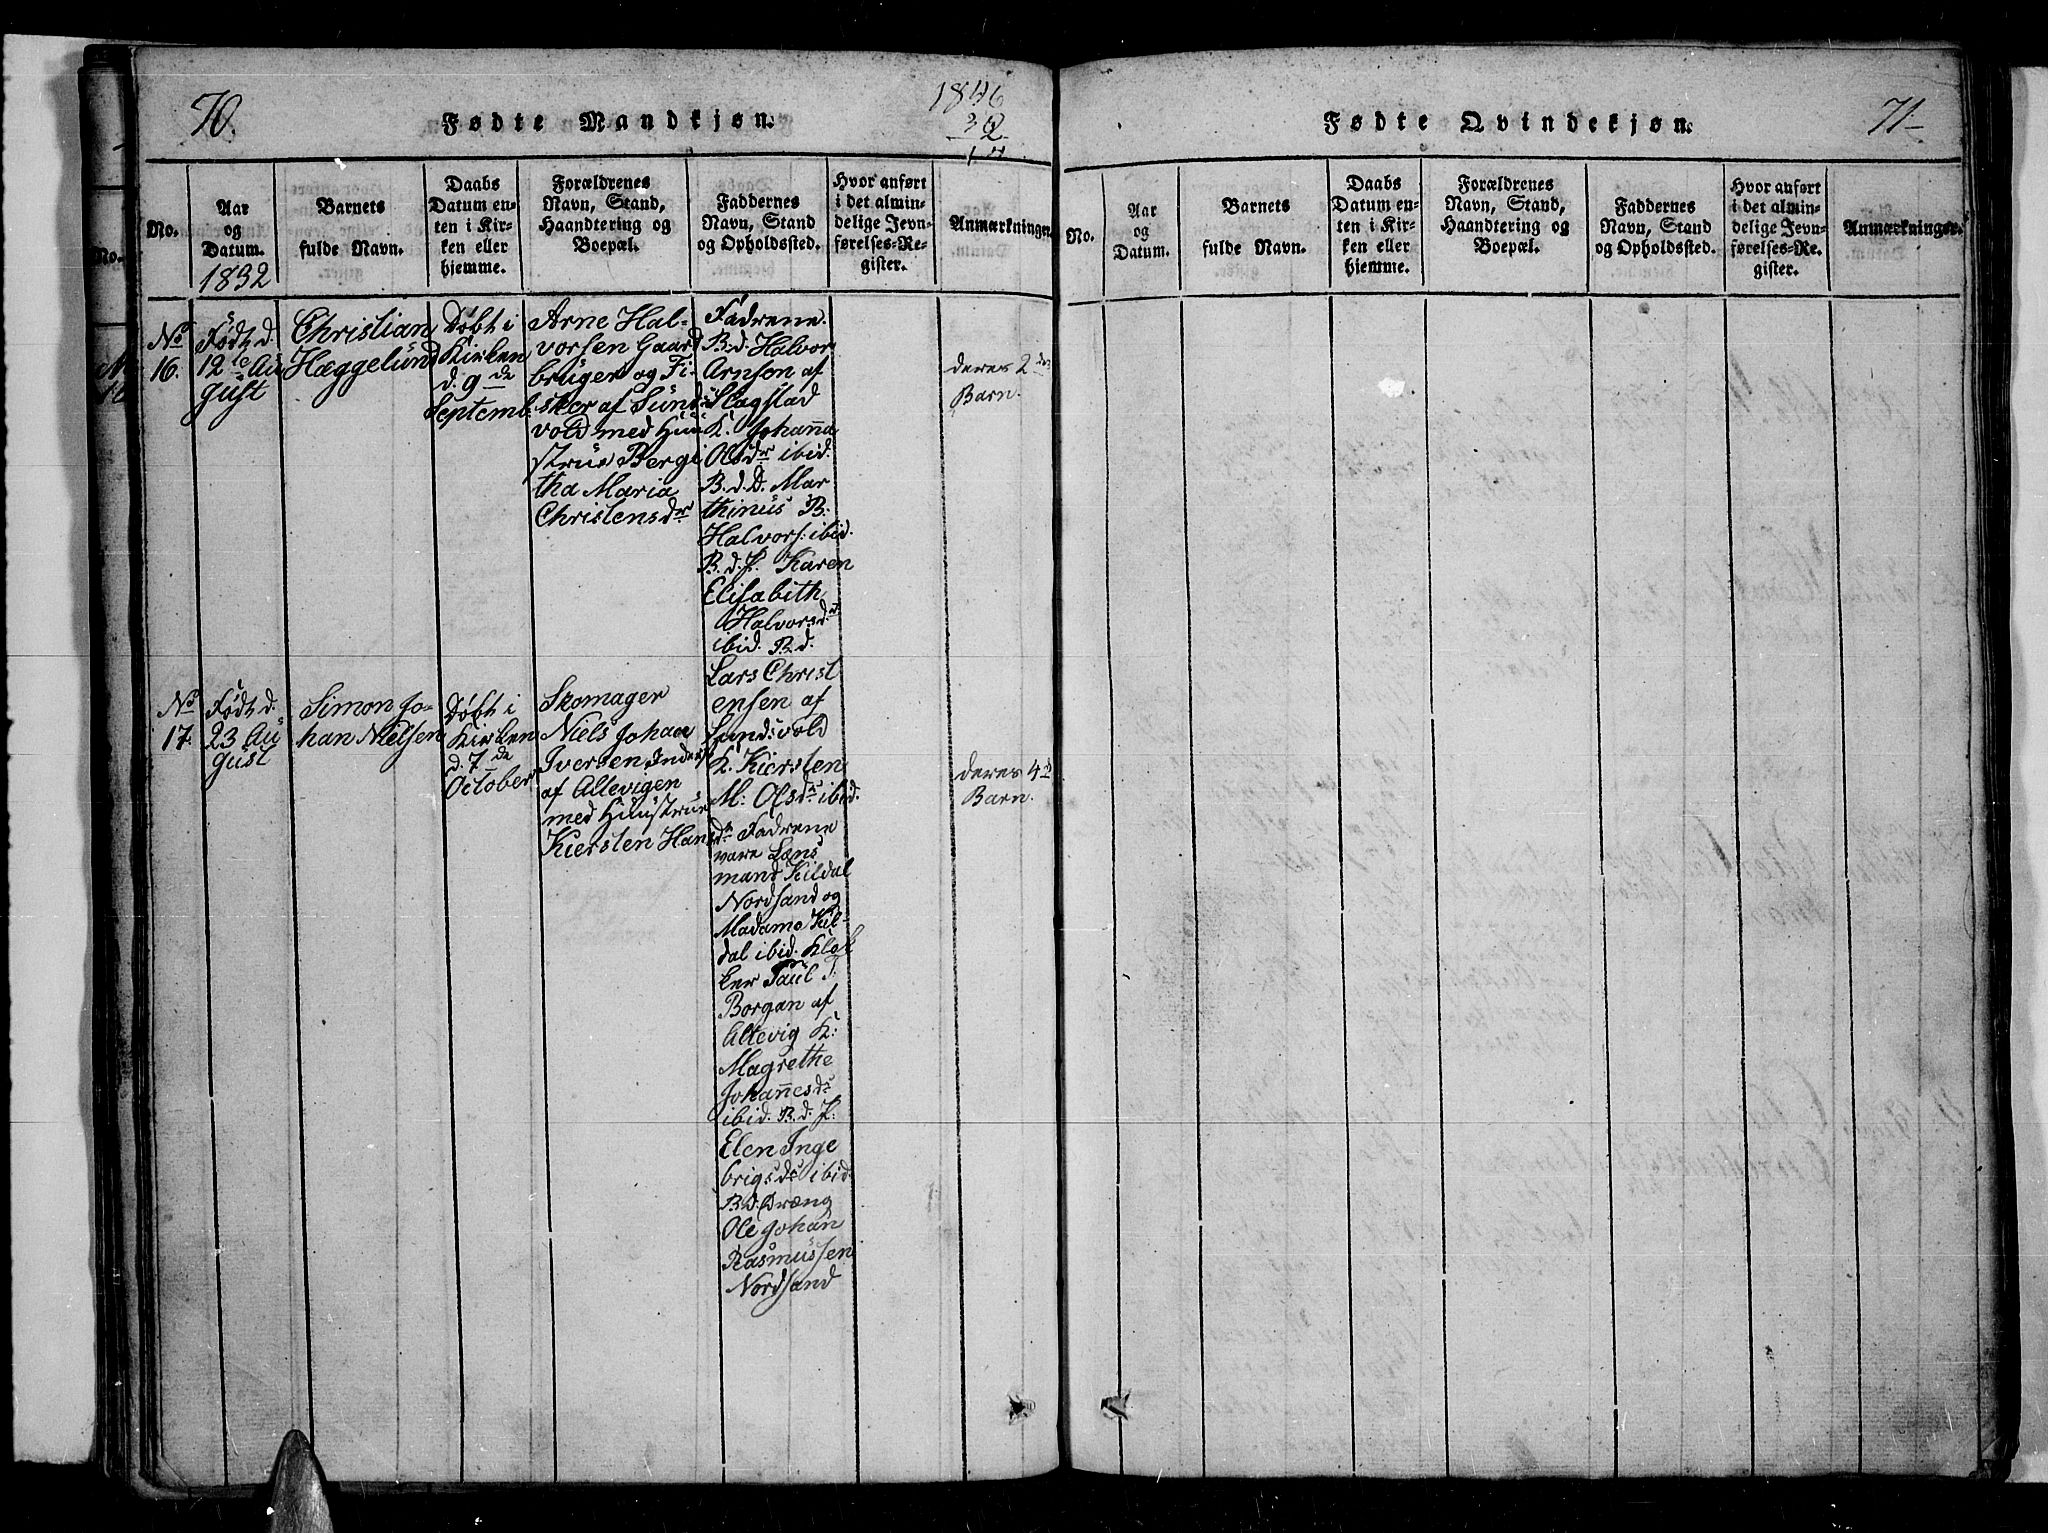 70.
Fødte Mandkjøn.
1846
32
14
No.
Aar
og
Datum.
1832
Barnets
fulde Navn.
Daabs
Datum en-
ten i Kir-
ken eller
hjemme.
Forældrenes
Navn, Stand,
Haandtering og
Boepæl.
Faddernes
Navn, Stand
og Opholdssted.
Hvor anført
i det almin-
delige Jevn-
førelses-Re-
gister.
Anmærkninger.
No.
16.
Født d.
12te Au
gust
Christian
Hæggelund
Døbt i
Kirken
d. 9de
Septemb:
Arne Hal-
vorsen Gaard
bruger og Fi-
sker af Sund:
vold med Huu
strue Bergi
tha Maria
Christensdr
Fadrene.
B.d. Halvor
Arnson af
Slagstad
K. Johanna
Olsdr ibid.
B. d. D. Mar
thinus B.
Halvors: ibid.
B. d. P. Karen
Elisabeth
Halvorsdr
ibid. B.d.
Lars Christ
ensen af
Sund:vold
K. Kiersten
M: Olsdr ibid.
deres 2det
Barn.
No
17.
Født d.
23 Au
gust
Simon Jo-
han Nielsen
Døbt i
Kirken
d. 7de
October
Skomager
Niels Johan
Iversen Inders
af Altevigen
med Huustrue
Kiersten Hans
dr Fadrene
vare Læns
mand Kildal
Nordsand og
Madame Kil-
dal ibid. Klok
ker Paul J:
Borgan af
Altevig K:
Magrethe
Johannesdr
ibid. B. d. P:
Elen Inge
brigsdr ibid.
B.d. Dræng
Ole Johan
Rasmussen
Nordsand
deres 4d
Barn.
71-
Fødte Qvindekjøn.
No.
Aar
og
Datum.
Barnets
fulde Navn.
Daabs
Datum en-
ten i Kir-
ken eller
hjemme.
Forældrenes
Navn, Stand,
Haandtering og
Boepæl.
Faddernes
Navn, Stand
og Opholdsted.
Hvor anført
i det almin-
delige Jevn-
førelses-Re-
gister.
Anmærkninger.